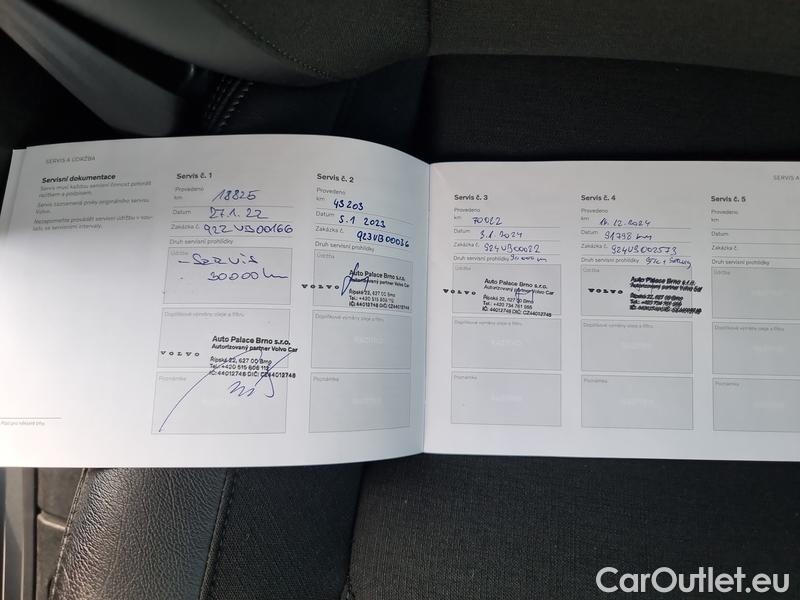 SERVIS A ÚDRŽBA
Servisní dokumentace
Servis musí každou servisní činnost potvrdit razítkem a podpisem.
Servis zaznamená prvky originálního servisu Volvo.
Nezapomeňte provádět servisní údržbu v souladu se servisními intervaly.
Servis č. 1
Provedeno
km 18825
Datum 27.1.22
Zakázka č. 922VB00166
Druh servisní prohlídky
Údržba
- SERVIS
- 30000 km
Doplňkové výměny oleje a filtru
VOLVO
Auto Palace Brno s.r.o.
Autorizovaný partner Volvo Car
Řípská 22, 627 00 Brno
Tel.: +420 515 606 112
IČ: 44012748 DIČ: CZ44012748
Poznámka
Servis č. 2
Provedeno
km 45203
Datum 5.1 2023
Zakázka č. 923VB00036
Druh servisní prohlídky
Údržba
VOLVO
Auto Palace Brno s.r.o.
Autorizovaný partner Volvo Car
Řípská 22, 627 00 Brno
IČ: 44012748 DIČ: CZ44012748
Doplňkové výměny oleje a filtru
Poznámka
SERVIS A
Servis č. 3
Provedeno
km 70022
Datum 3.1.2024
Zakázka č. 924VB00022
Druh servisní prohlídky 90 000 km
Údržba
VOLVO
Auto Palace Brno s.r.o.
Autorizovaný partner Volvo Car
Řípská 22, 627 00 Brno
Tel.: +420 734 761 955
IČ: 44012748 DIČ: CZ44012748
Doplňkové výměny oleje a filtru
Poznámka
Servis č. 4
Provedeno
km 16.12.2024
Datum 91798 km
Zakázka č. 924VB002573
Druh servisní prohlídky
Údržba
VOLVO
Auto Palace Brno s.r.o.
Autorizovaný partner Volvo Car
Řípská 22, 627 00 Brno
Doplňkové výměny oleje a filtru
Poznámka
Servis č. 5
Provedeno
km
Datum
Zakázka č.
Druh servisní prohlídky
Údržba
Doplňkové výměny oleje a filtru
Poznámka
CarOutlet.eu